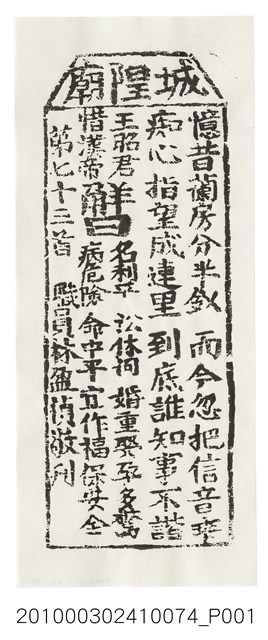 城隍廟
憶昔蘭房分半釵 而今忽把信音乖
痴心指望成連里 到底誰知事不諧
王昭君 名利平 訟休拘 婚重娶 孕多驚
惜漢帝 解曰 病危險 命中平 宜作福 保安全
第七十三首 職員林盈 敬刊
201000302410074_P001